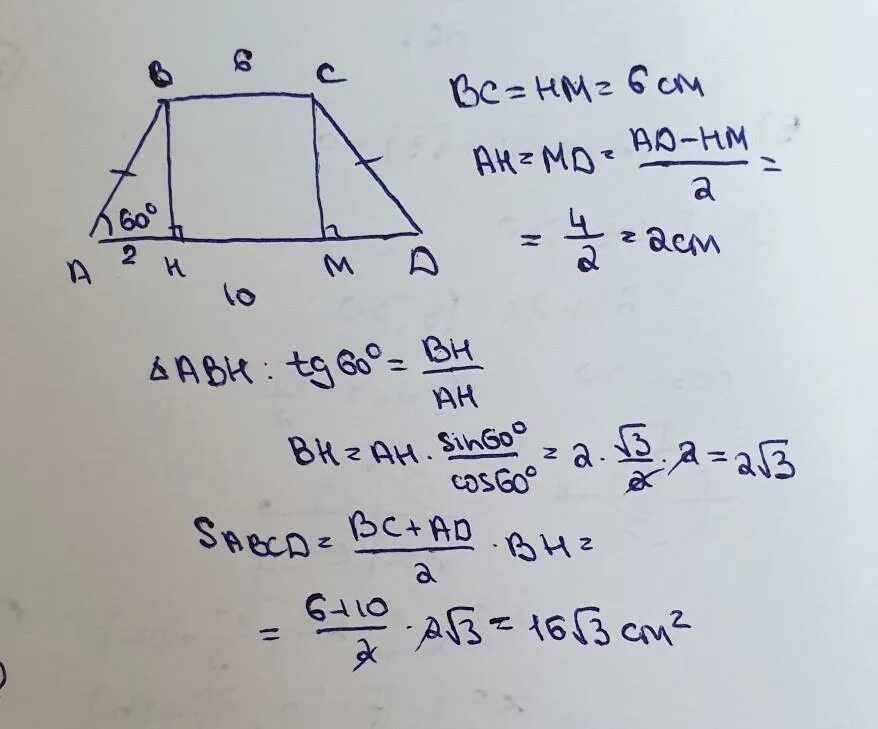 B 6 C
60°
A 2 H M D
10
BC = HM = 6 см
AH = MD = (AD-HM)/2 =
= 4/2 = 2см
△ABH: tg60° = BH/AH
BH = AH · sin60°/cos60° = 2 · √3/2 · 2 = 2√3
SABCD = (BC+AD)/2 · BH =
= (6+10)/2 · 2√3 = 16√3 см²